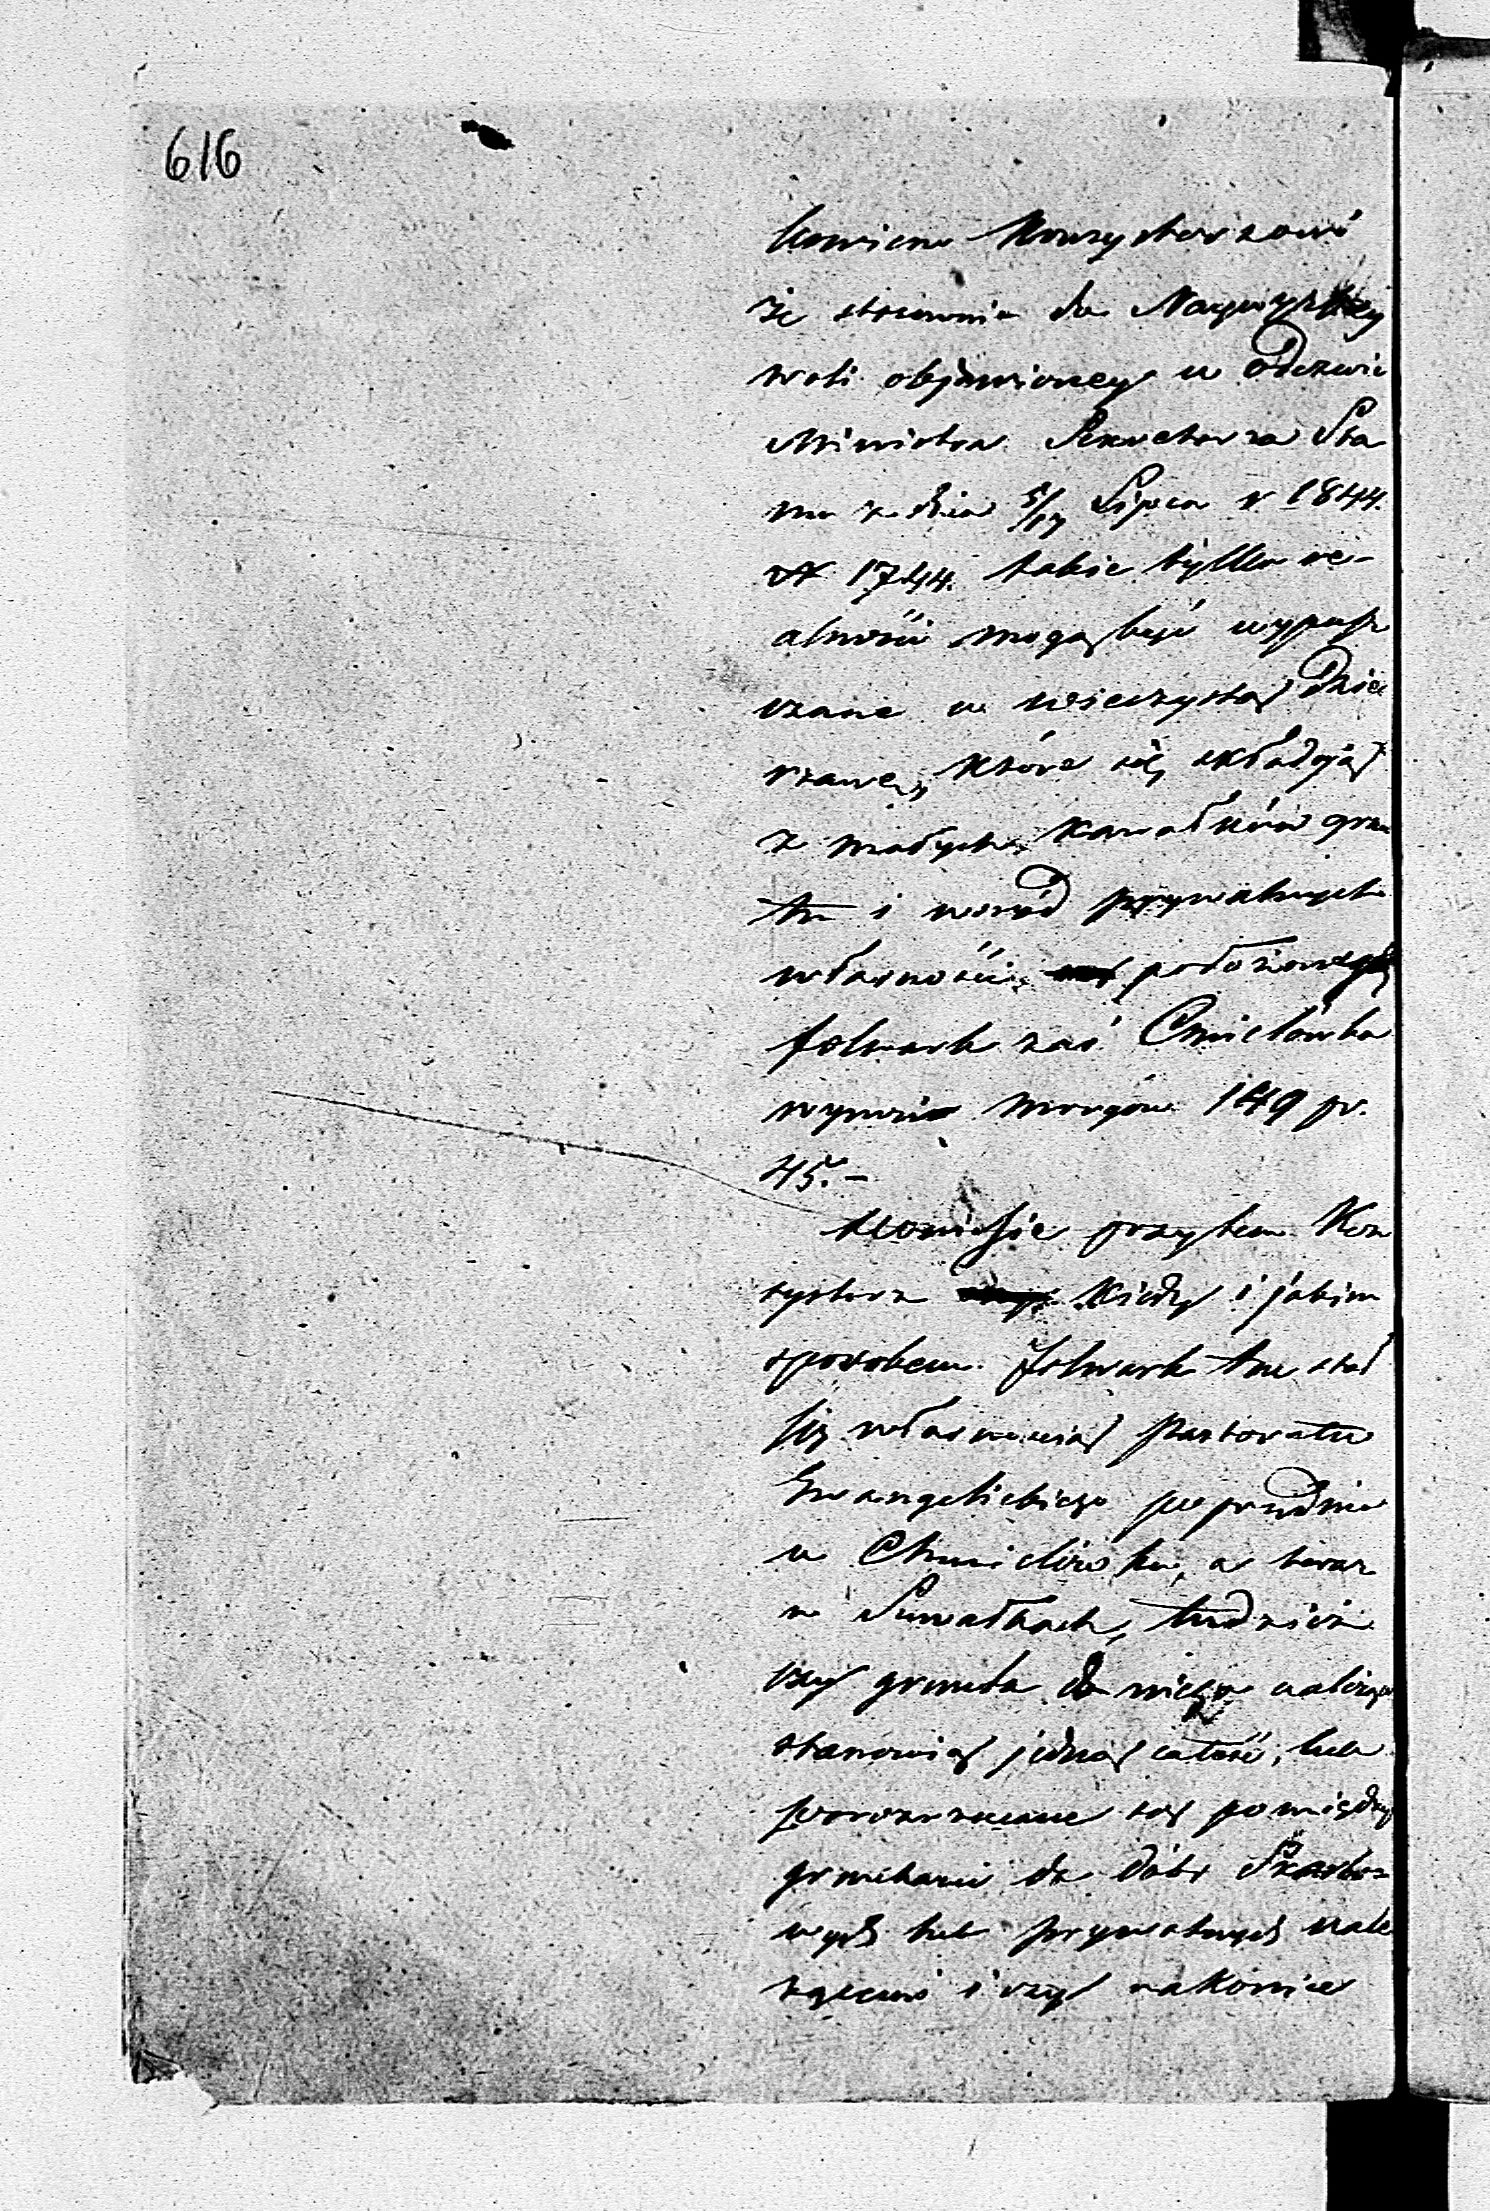 616
Konsystorzowi
że stosownie do Najwyższej
woli objawioney w odezwie
Ministra Sekretarza Sta
nu z dnia 5/17 Lipca r 1844.
N 1744. takie tylko re-
alności mogą być wypusz
czane w wieczystą dzie
rzawę, które się składają
z małych kawałków grun
tu i wśród prywatnych
własności położonych
folwark zaś Chmielówka
wynosi morgów 149 pr.
45.-
Doniesie przytem Kon
systorz kiedy i jakim
sposobem folwark ten stał
się własnością Pastoratu
Ewangelickiego poprzednio
w Chmielówku, a teraz
w Suwałkach, tudzież
czy grunta do niego należące
stanowią jedną całość, lub
porozrzucane są pomiędzy
gruntami do dóbr Skarbo-
wych lub prywatnych nale
żącemi i czy nakoniec